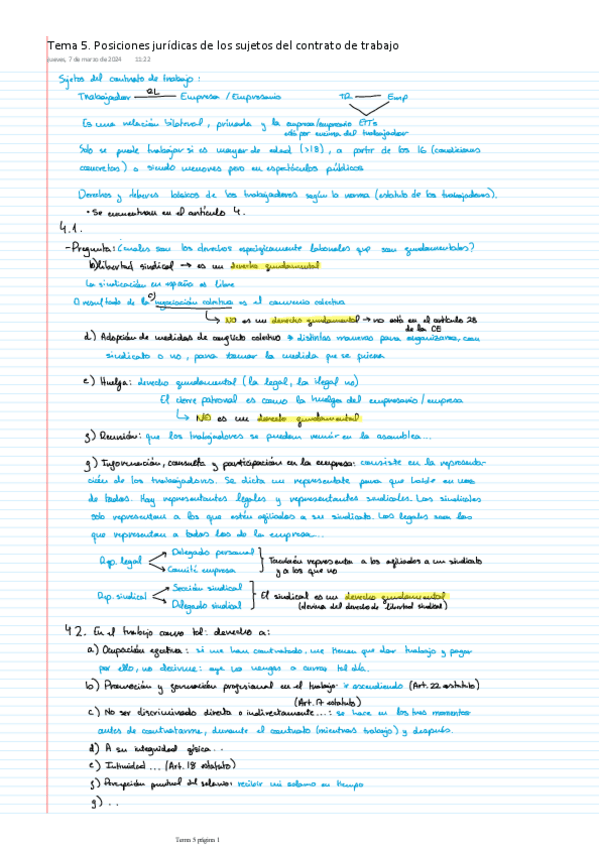 Tema 5. Posiciones jurídicas de los sujetos del contrato de trabajo
Jueves, 7 de marzo de 2024 11:22
Sujetos del contrato de trabajo:
Trabajador RL Empresa / Empresario TR Emp
Es una relación bilateral, privada y la empresa/empresario
está por encima del trabajador
Solo se puede trabajar si es mayor de edad (>18), a partir de los 16 (condiciones
concretas) o siendo menores pero en espectáculos públicos
Derechos y deberes básicos de los trabajadores según la norma (estatuto de los trabajadores).
• Se encuentran en el artículo 4.
4.1.
- Pregunta: ¿cuáles son los derechos específicamente laborales que son fundamentales?
b) libertad sindical → es un derecho fundamental
La sindicación en españa es libre
El resultado de la c) negociación colectiva es el convenio colectivo
↳ NO es un derecho fundamental → no está en el artículo 28
de la CE
d) Adopción de medidas de conflicto colectivo → distintas maneras para organizarse, con
sindicato o no, para tomar la medida que se quiera
e) Huelga: derecho fundamental (la legal, la ilegal no)
El cierre patronal es como la huelga del empresario / empresa
↳ NO es un derecho fundamental
f) Reunión: que los trabajadores se puedan reunir en la asamblea...
g) Información, consulta y participación en la empresa: consiste en la representa-
ción de los trabajadores. Se dicta un representate para que hable en
de todos. Hay representantes legales y representantes sindicales. Los sindicales
solo representan a los que estén afiliados a su sindicato. Los legales son los
que representan a todos los de la empresa...
Rep. legal Delegado personal
Comité empresa
También representan a los afiliados a un sindicato
y a los que no
Rep. sindical Sección sindical
Delegado sindical
El sindical es un derecho fundamental
(deriva del derecho de libertad sindical)
4.2. En el trabajo como tal: derecho a:
a) Ocupación efectiva: si me han contratado, me tienen que dar trabajo y pagar
por ello, no decirme: oye no vengas a currar tal día.
b) Promoción y formación profesional en el trabajo: ascendiendo (Art. 22 estatuto)
(Art. 17 estatuto)
c) No ser discriminado directa o indirectamente...: se hace en los tres momentos
antes de contratarme, durante el contrato (mientras trabajo) y después.
d) A su integridad física...
e) Intimidad... (Art. 18 estatuto)
f) Percepción puntual del salario: recibir mi salario en tiempo
g) ..
Tema 5 página 1